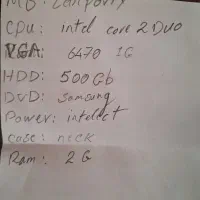 MB: Company
CPU: intel core 2 Duo
VGA: 6470 1G
HDD: 500 Gb
DVD: Samsung
Power: intelect
Case: neck
Ram: 2 G